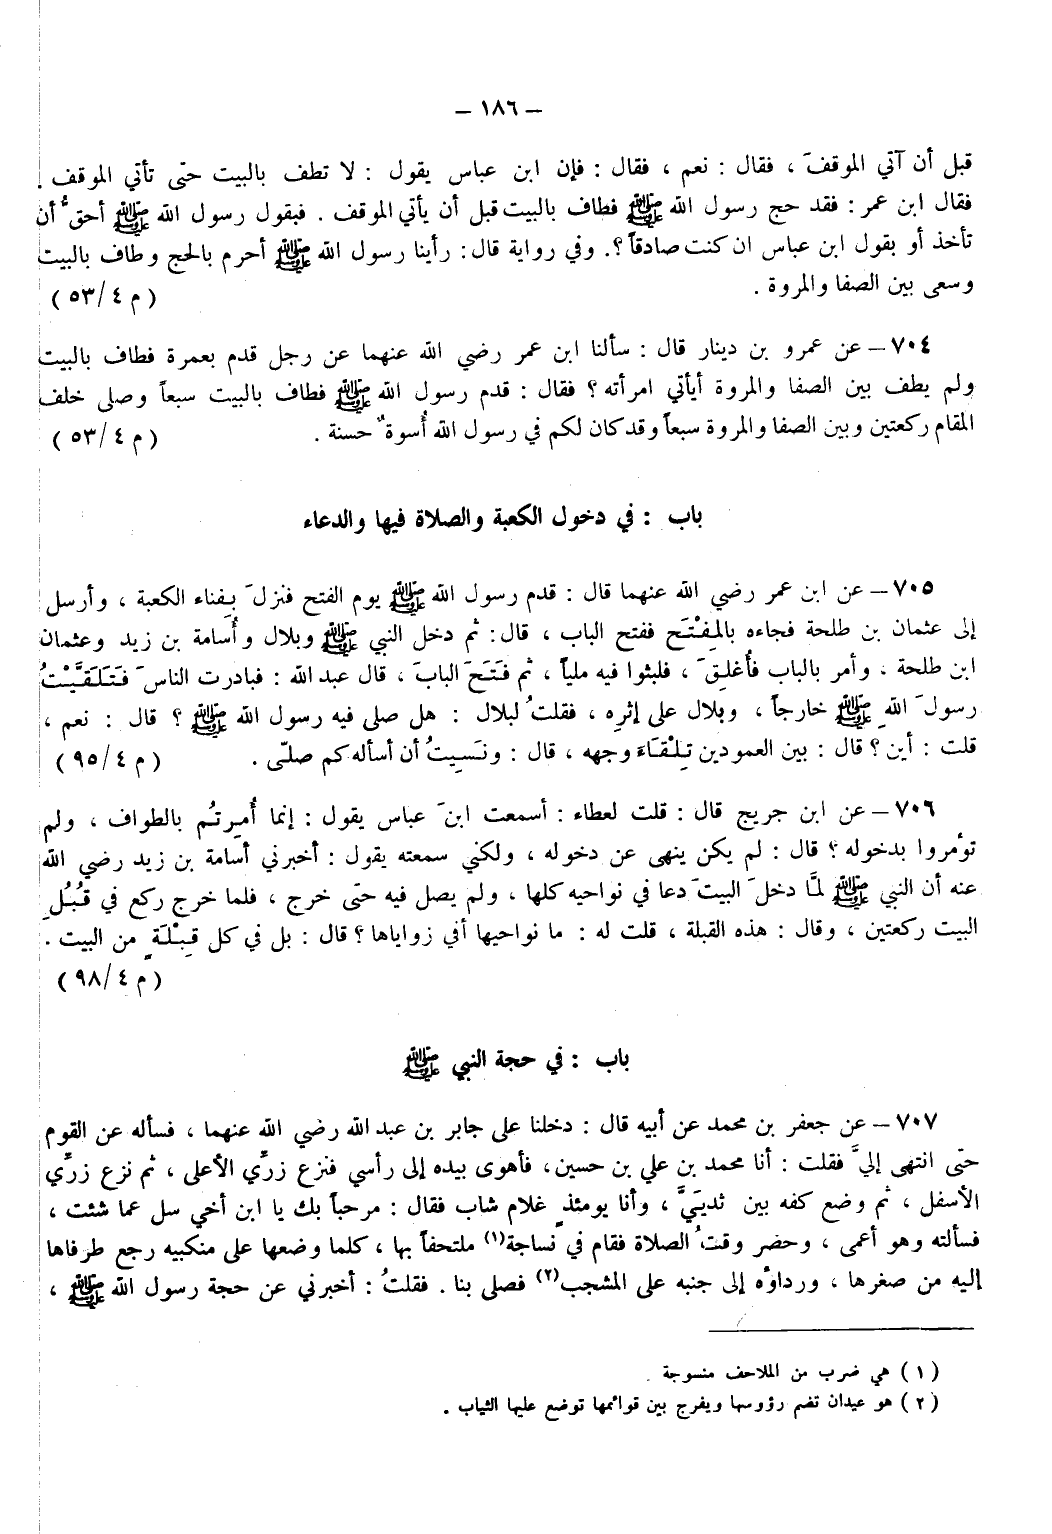 – ١٨٦ –
قبل أن آتي الموقفَ ، فقال : نعم ، فقال : فإن ابن عباس يقول : لا تطف بالبيت حتى تأتي الموقف .
فقال ابن عمر : فقد حج رسول الله ﷺ فطاف بالبيت قبل أن يأتي الموقف . فبقول رسول الله ﷺ أحقُّ أن
تأخذ أو بقول ابن عباس ان كنت صادقاً ؟. وفي رواية قال : رأينا رسول الله ﷺ أحرم بالحج وطاف بالبيت
وسعى بين الصفا والمروة . ( م ٤/ ٥٣ )
٧٠٤ – عن عمرو بن دينار قال : سألنا ابن عمر رضي الله عنهما عن رجل قدم بعمرة فطاف بالبيت
ولم يطف بين الصفا والمروة أيأتي امرأته ؟ فقال : قدم رسول الله ﷺ فطاف بالبيت سبعاً وصلى خلف
المقام ركعتين وبين الصفا والمروة سبعاً وقد كان لكم في رسول الله أُسوةٌ حسنة . ( م ٤/ ٥٣ )
باب : في دخول الكعبة والصلاة فيها والدعاء
٧٠٥ – عن ابن عمر رضي الله عنهما قال : قدم رسول الله ﷺ يوم الفتح فنزلَ بِفناء الكعبة ، وأرسل
إلى عثمان بن طلحة فجاءه بالمِفْتَح ففتح الباب ، قال : ثم دخل النبي ﷺ وبلال وأُسامة بن زيد وعثمان
ابن طلحة ، وأمر بالباب فأُغلِقَ ، فلبثوا فيه ملياً ، ثم فَتَحَ البابَ ، قال عبد الله : فبادرت الناسَ فَتَلَقَّيْتُ
رسولَ اللهِ ﷺ خارجاً ، وبلال على إثرِه ، فقلتُ لبلال : هل صلى فيه رسول الله ﷺ ؟ قال : نعم ،
قلت : أين ؟ قال : بين العمودين تِلْقَاءَ وجهه ، قال : ونَسِيتُ أن أسأله كم صلّى . ( م ٤/ ٩٥ )
٧٠٦ – عن ابن جريج قال : قلت لعطاء : أسمعت ابنَ عباس يقول : إنما أُمِرتُم بالطواف ، ولم
تؤمروا بدخوله ؟ قال : لم يكن ينهى عن دخوله ، ولكني سمعته يقول : أخبرني أسامة بن زيد رضي الله
عنه أن النبي ﷺ لمَّا دخلَ البيتَ دعا في نواحيه كلها ، ولم يصل فيه حتى خرج ، فلما خرج ركع في قُبُلِ
البيت ركعتين ، وقال : هذه القبلة ، قلت له : ما نواحيها أفي زواياها ؟ قال : بل في كل قِبْلَةٍ من البيت .
( م ٤/ ٩٨ )
باب : في حجة النبي ﷺ
٧٠٧ – عن جعفر بن محمد عن أبيه قال : دخلنا على جابر بن عبد الله رضي الله عنهما ، فسأله عن القوم
حتى انتهى إليَّ فقلت : أنا محمد بن علي بن حسين ، فأهوى بيده إلى رأسي فنزع زرِّي الأعلى ، ثم نزع زرِّي
الأسفل ، ثم وضع كفه بين ثدييَّ ، وأنا يومئذٍ غلام شاب فقال : مرحباً بك يا ابن أخي سل عما شئت ،
فسألته وهو أعمى ، وحضر وقتُ الصلاة فقام في نساجة(١) ملتحفاً بها ، كلما وضعها على منكبيه رجع طرفاها
إليه من صغرها ، ورداؤه إلى جنبه على المشجب(٢) فصلى بنا . فقلتُ : أخبرني عن حجة رسول الله ﷺ ،
( ١ ) هي ضرب من الملاحف منسوجة .
( ٢ ) هو عيدان تضم رؤوسها ويفرج بين قوائمها توضع عليها الثياب .